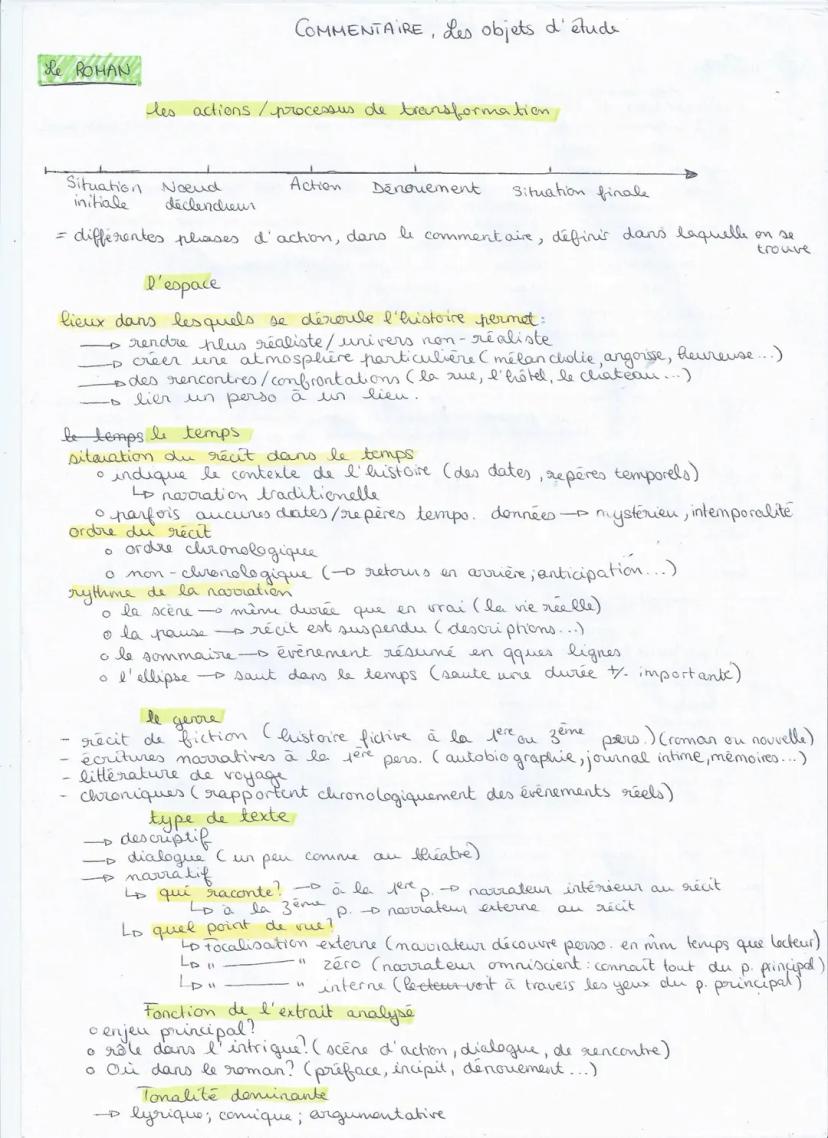 COMMENTAIRE, Les objets d'étude
Le ROMAN
les actions / processus de transformation
Situation initiale Noeud déclencheur Action Dénouement Situation finale
= différentes phases d'action, dans le commentaire, définir dans laquelle on se trouve
l'espace
lieux dans lesquels se déroule l'histoire permet:
→ rendre plus réaliste / univers non-réaliste
→ créer une atmosphère particulière (mélancholie, angoisse, heureuse...)
→ des rencontres/confrontations (la rue, l'hôtel, le chateau...)
→ lier un perso à un lieu.
le temps le temps
situation du récit dans le temps
o indique le contexte de l'histoire (des dates, repères temporels)
↳ narration traditionelle
o parfois aucunes dates/repères tempo. données → mystérieu, intemporalité
ordre du récit
o ordre chronologique
o non-chronologique (→ retours en arrière; anticipation...)
rythme de la narration
o la scène → même durée que en vrai (la vie réelle)
o la pause → récit est suspendu (descriptions...)
o le sommaire → évènement résumé en qques lignes
o l'ellipse → saut dans le temps (saute une durée +/- importante)
le genre
- récit de fiction (histoire fictive à la 1ère ou 3ème pers.) (roman ou nouvelle)
- écritures narratives à la 1ère pers. (autobiographie, journal intime, mémoires...)
- littérature de voyage
- chroniques (rapportent chronologiquement des évènements réels)
type de texte
→ descriptif
→ dialogue (un peu comme au théatre)
→ narratif
↳ qui raconte? → à la 1ère p. → narrateur intérieur au récit
↳ à la 3ème p. → narrateur externe au récit
↳ quel point de vue?
↳ focalisation externe (narrateur découvre perso. en mm temps que lecteur)
↳ " ——— " zéro (narrateur omniscient: connaît tout du p. principal)
↳ " ——— " interne (lecteur voit à travers les yeux du p. principal)
Fonction de l'extrait analysé
o enjeu principal?
o rôle dans l'intrigue? (scène d'action, dialogue, de rencontre)
o Où dans le roman? (préface, incipit, dénouement...)
Tonalité dominante
→ lyrique; comique; argumentative